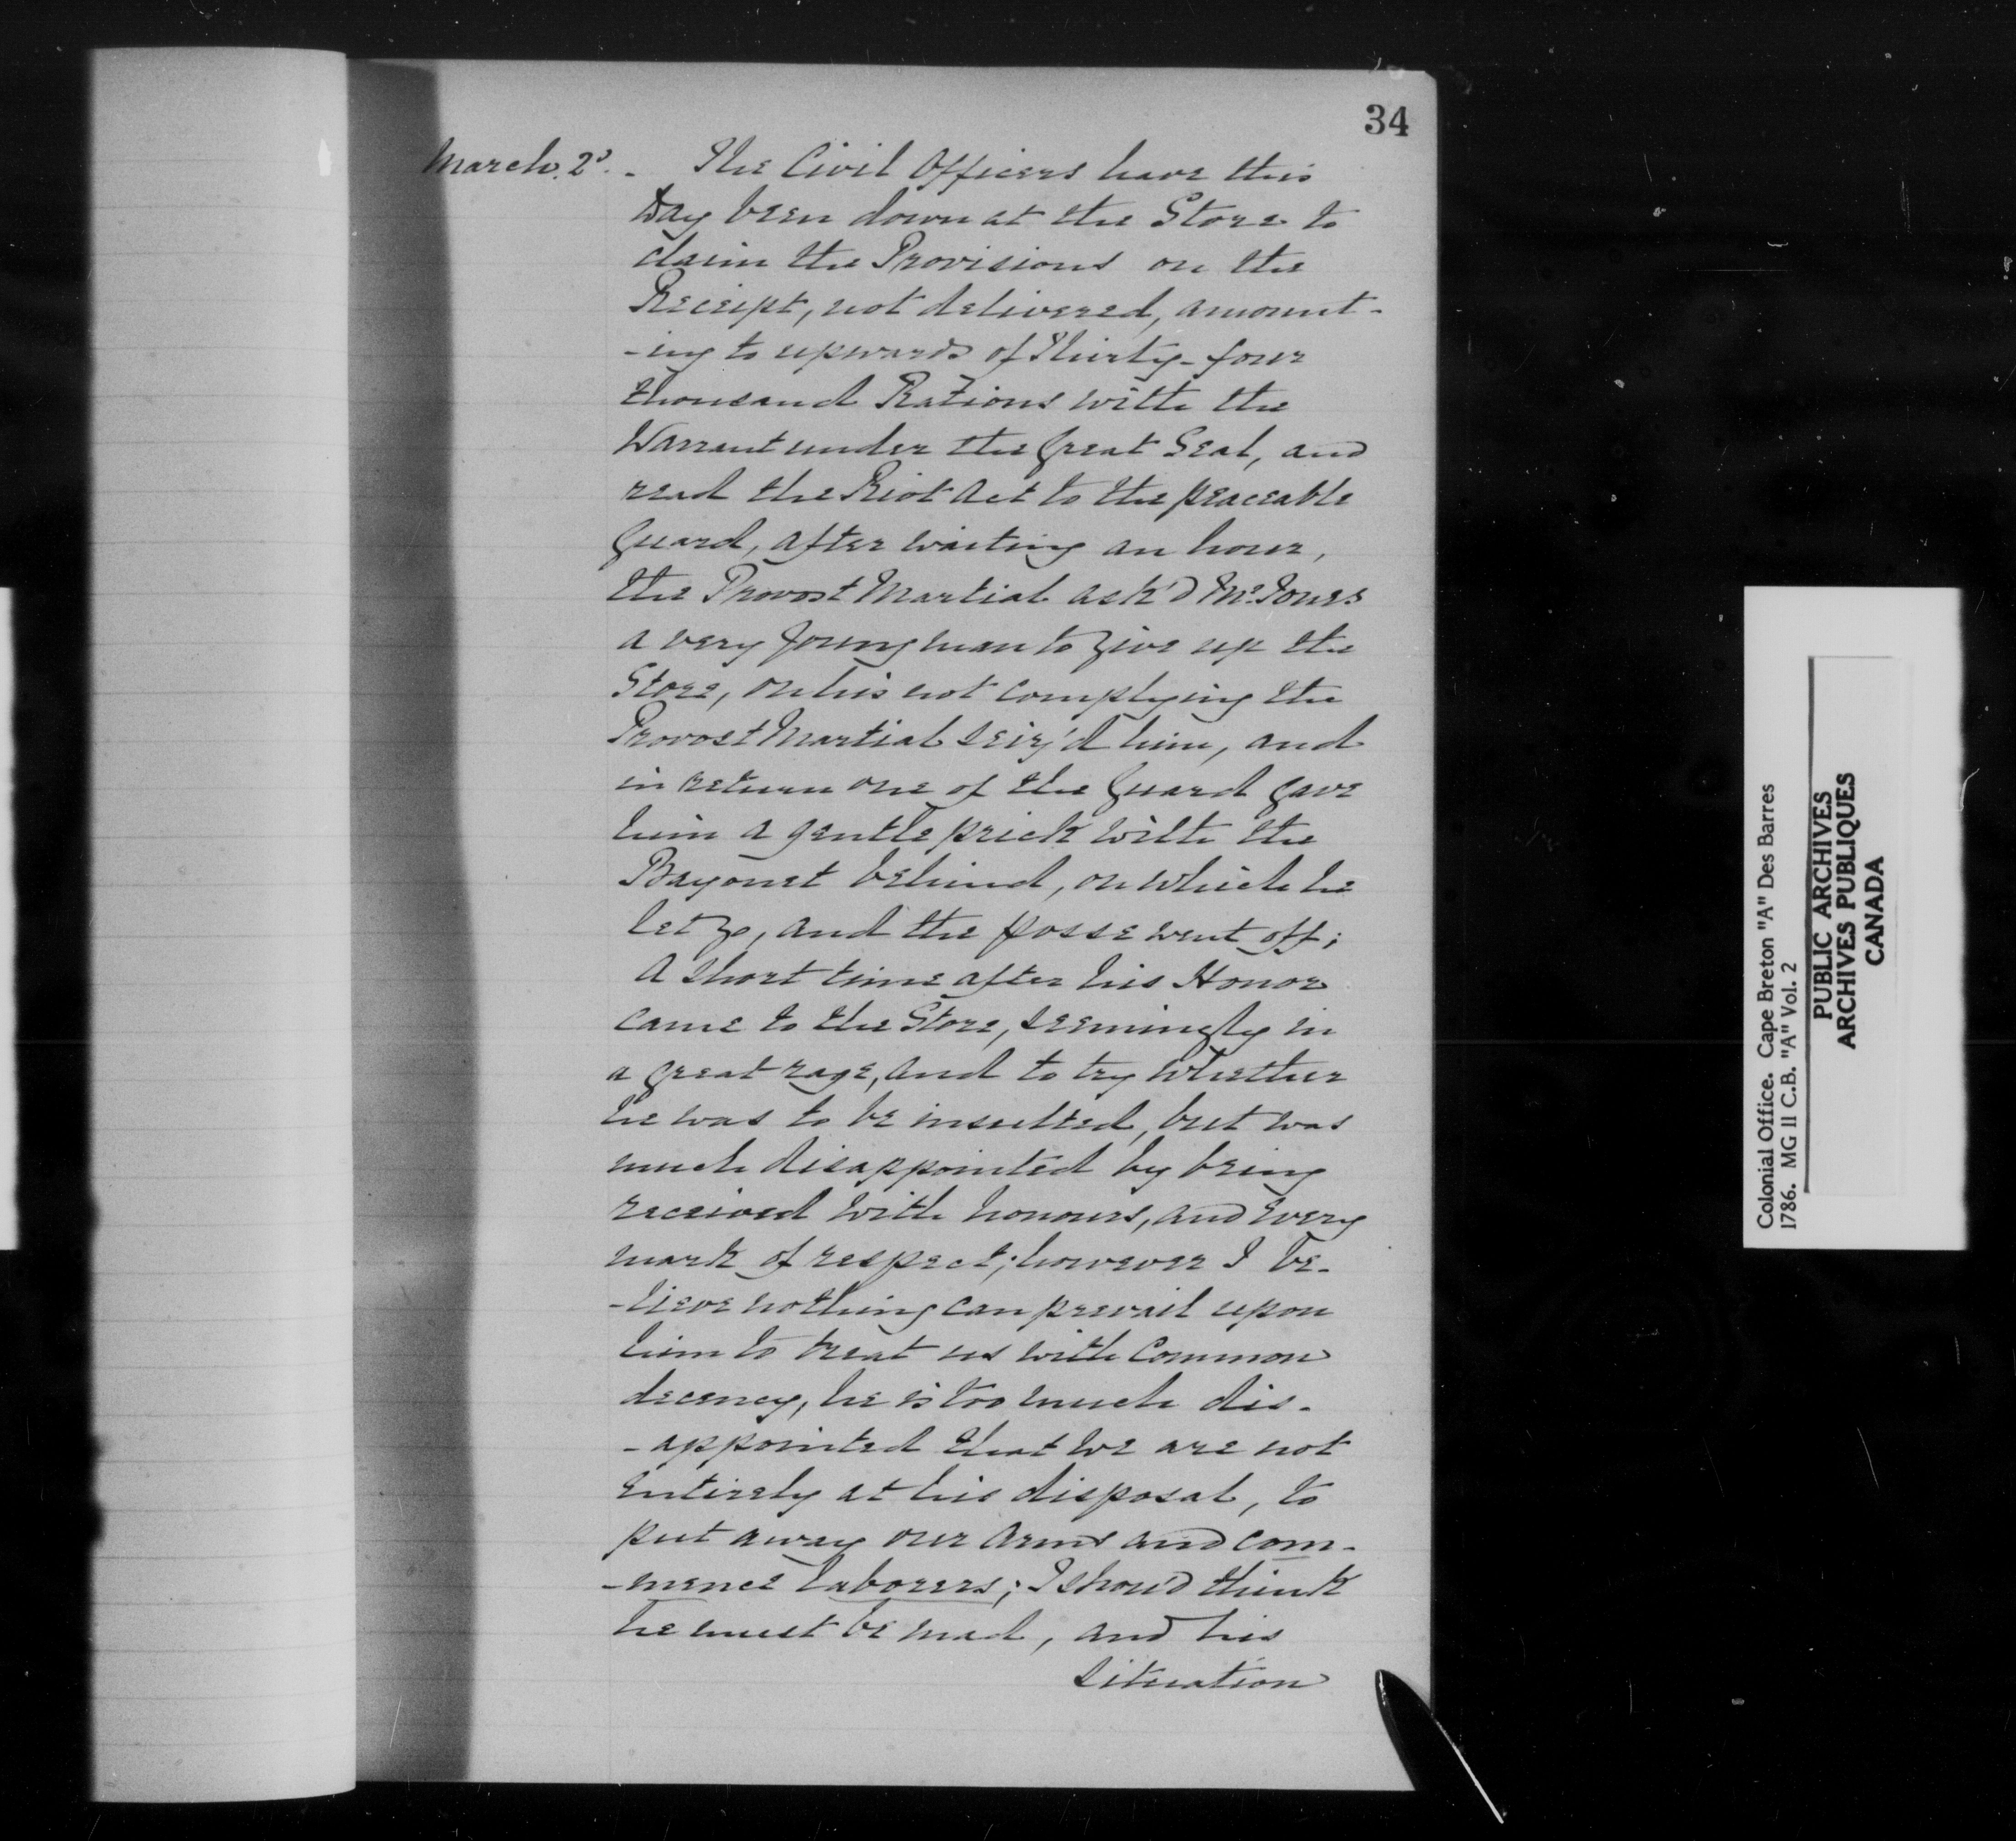 34
March. 2d. - The Civil Officers have this
Day been down at the Store to
claim the Provisions on the
Receipt, not delivered, amount-
-ing to upwards of Thirty-four
thousand Rations with the
Warrant under the Great Seal, and
read the Riot Act to the peaceable
Guard, after waiting an hour,
the Provost Martial ask'd Mr. Jones
a very Young man to give up the
Store, on his not complying the
Provost Martial seiz'd him, and
in return one of the Guard gave
him a gentle prick with the
Bayonet behind, on which he
let go, and the posse went off;
A short time after his Honor
came to the Store, seemingly in
a great rage, and to try whether
he was to be insulted, but was
much disappointed by being
received with honours, and every
mark of respect; however I be-
-lieve nothing can prevail upon
him to treat us with common
decency, he is too much dis-
-appointed that we are not
entirely at his disposal, to
put away our arms and com-
-mence laborers; I shou'd think
he must be mad, and his
situation
Colonial Office. Cape Breton "A" Des Barres
1786. MG 11 C.B. "A" Vol. 2
PUBLIC ARCHIVES
ARCHIVES PUBLIQUES
CANADA